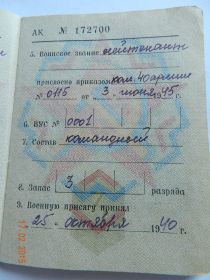 АК № 172700
5. Воинское звание лейтенант
присвоено приказом ком. 40 армии
№ 0115 от „3“ июня 1945 г.
6. ВУС № 0001
7. Состав командный
8. Запас 3 разряда
9. Военную присягу принял
25 октября 1940 г.